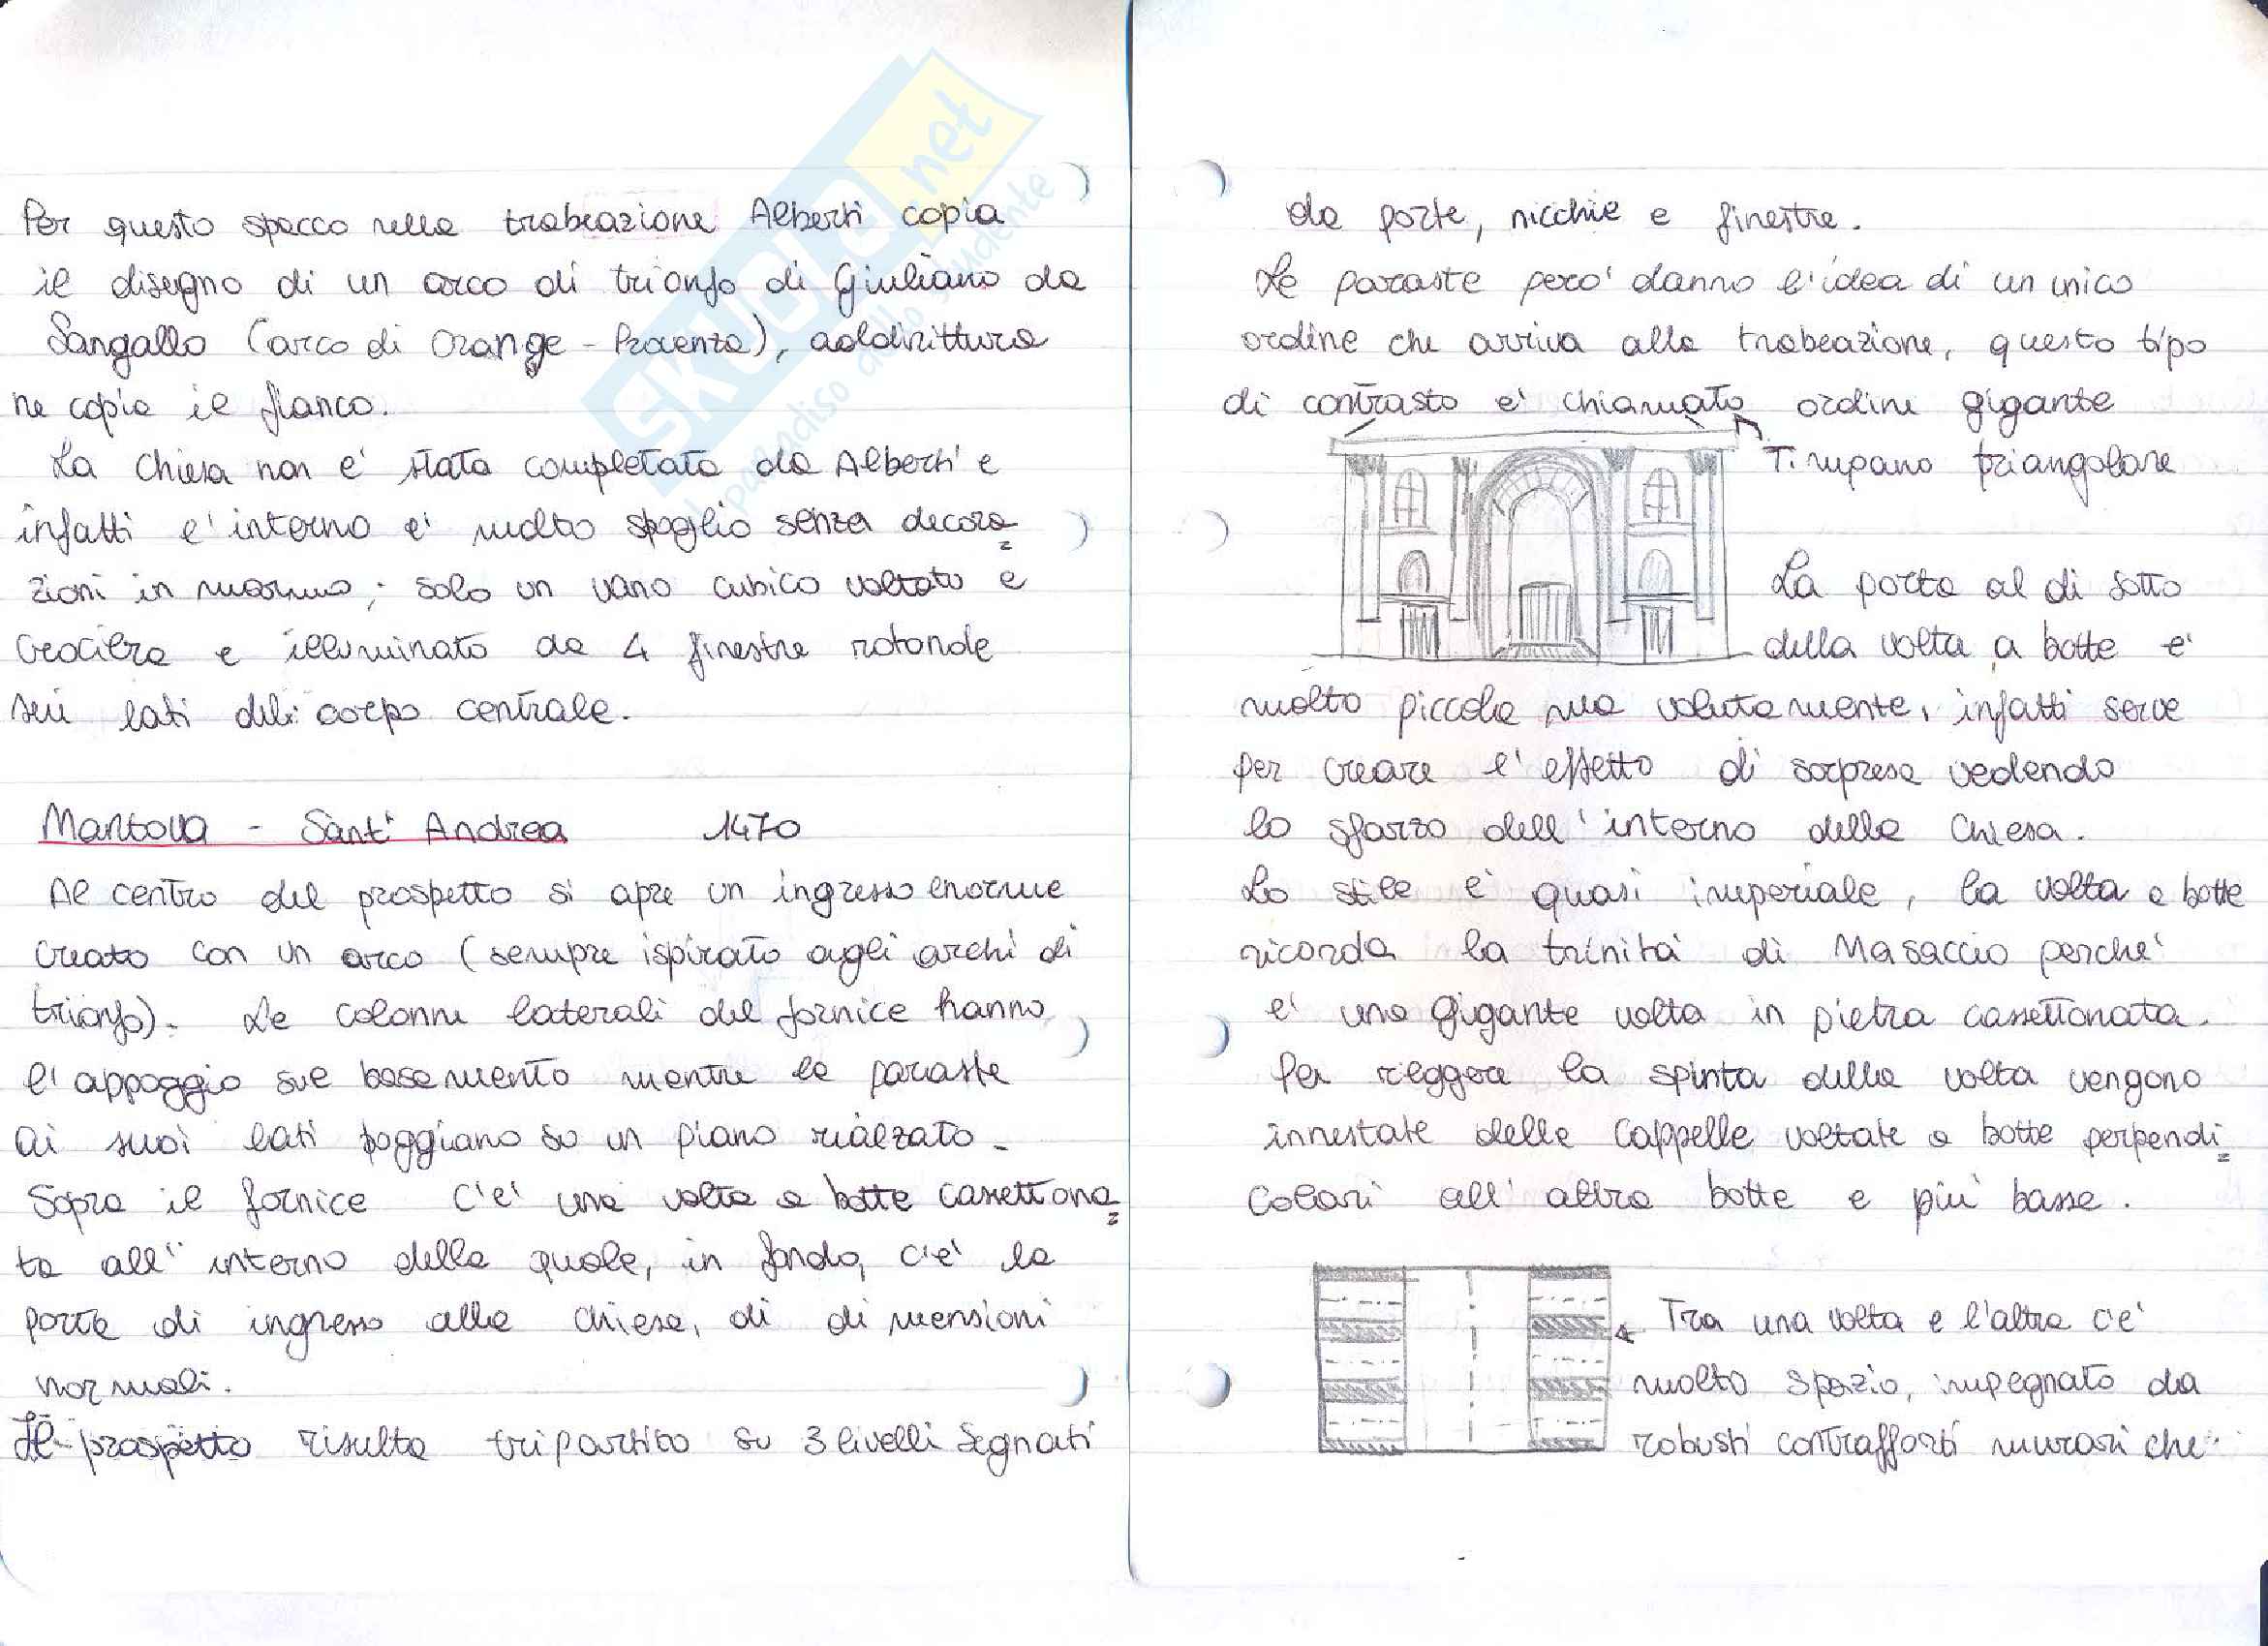 Per questo spacco nella trabeazione Alberti copia
il disegno di un arco di trionfo di Giuliano da
Sangallo (arco di Orange - Provenza), addirittura
ne copia il fianco.
La Chiesa non e' stata completata da Alberti e
infatti l'interno e' molto spoglio senza decora=
zioni in marmo; solo un vano cubico voltato a
crociera e illuminato da 4 finestre rotonde
sui lati del corpo centrale.
Mantova - Sant' Andrea 1470
Al centro del prospetto si apre un ingresso enorme
creato con un arco (sempre ispirato agli archi di
trionfo). Le colonne laterali del fornice hanno
l'appoggio sul basamento mentre le paraste
ai suoi lati poggiano su un piano rialzato.
Sopra il fornice c'e' una volta a botte cassettona=
ta all' interno della quale, in fondo, c'e' la
porta di ingresso alla chiesa, di dimensioni
normali.
Il prospetto risulta tripartito su 3 livelli segnati
da porte, nicchie e finestre.
Le paraste pero' danno l'idea di un unico
ordine che arriva alla trabeazione, questo tipo
di contrasto e' chiamato ordine gigante
Timpano triangolare
La porta al di sotto
della volta a botte e'
molto piccola ma volutamente, infatti serve
per creare l'effetto di sorpresa vedendo
lo sfarzo dell'interno della Chiesa.
Lo stile e' quasi imperiale, la volta a botte
ricorda la trinità di Masaccio perche'
e' una gigante volta in pietra cassettonata.
Per reggere la spinta della volta vengono
innestate delle Cappelle voltate a botte perpendi=
colari all' altra botte e più basse.
Tra una volta e l'altra c'e'
molto spazio, impegnato da
robusti contrafforti murari che
SKUOLA.net
il paradiso dello studente